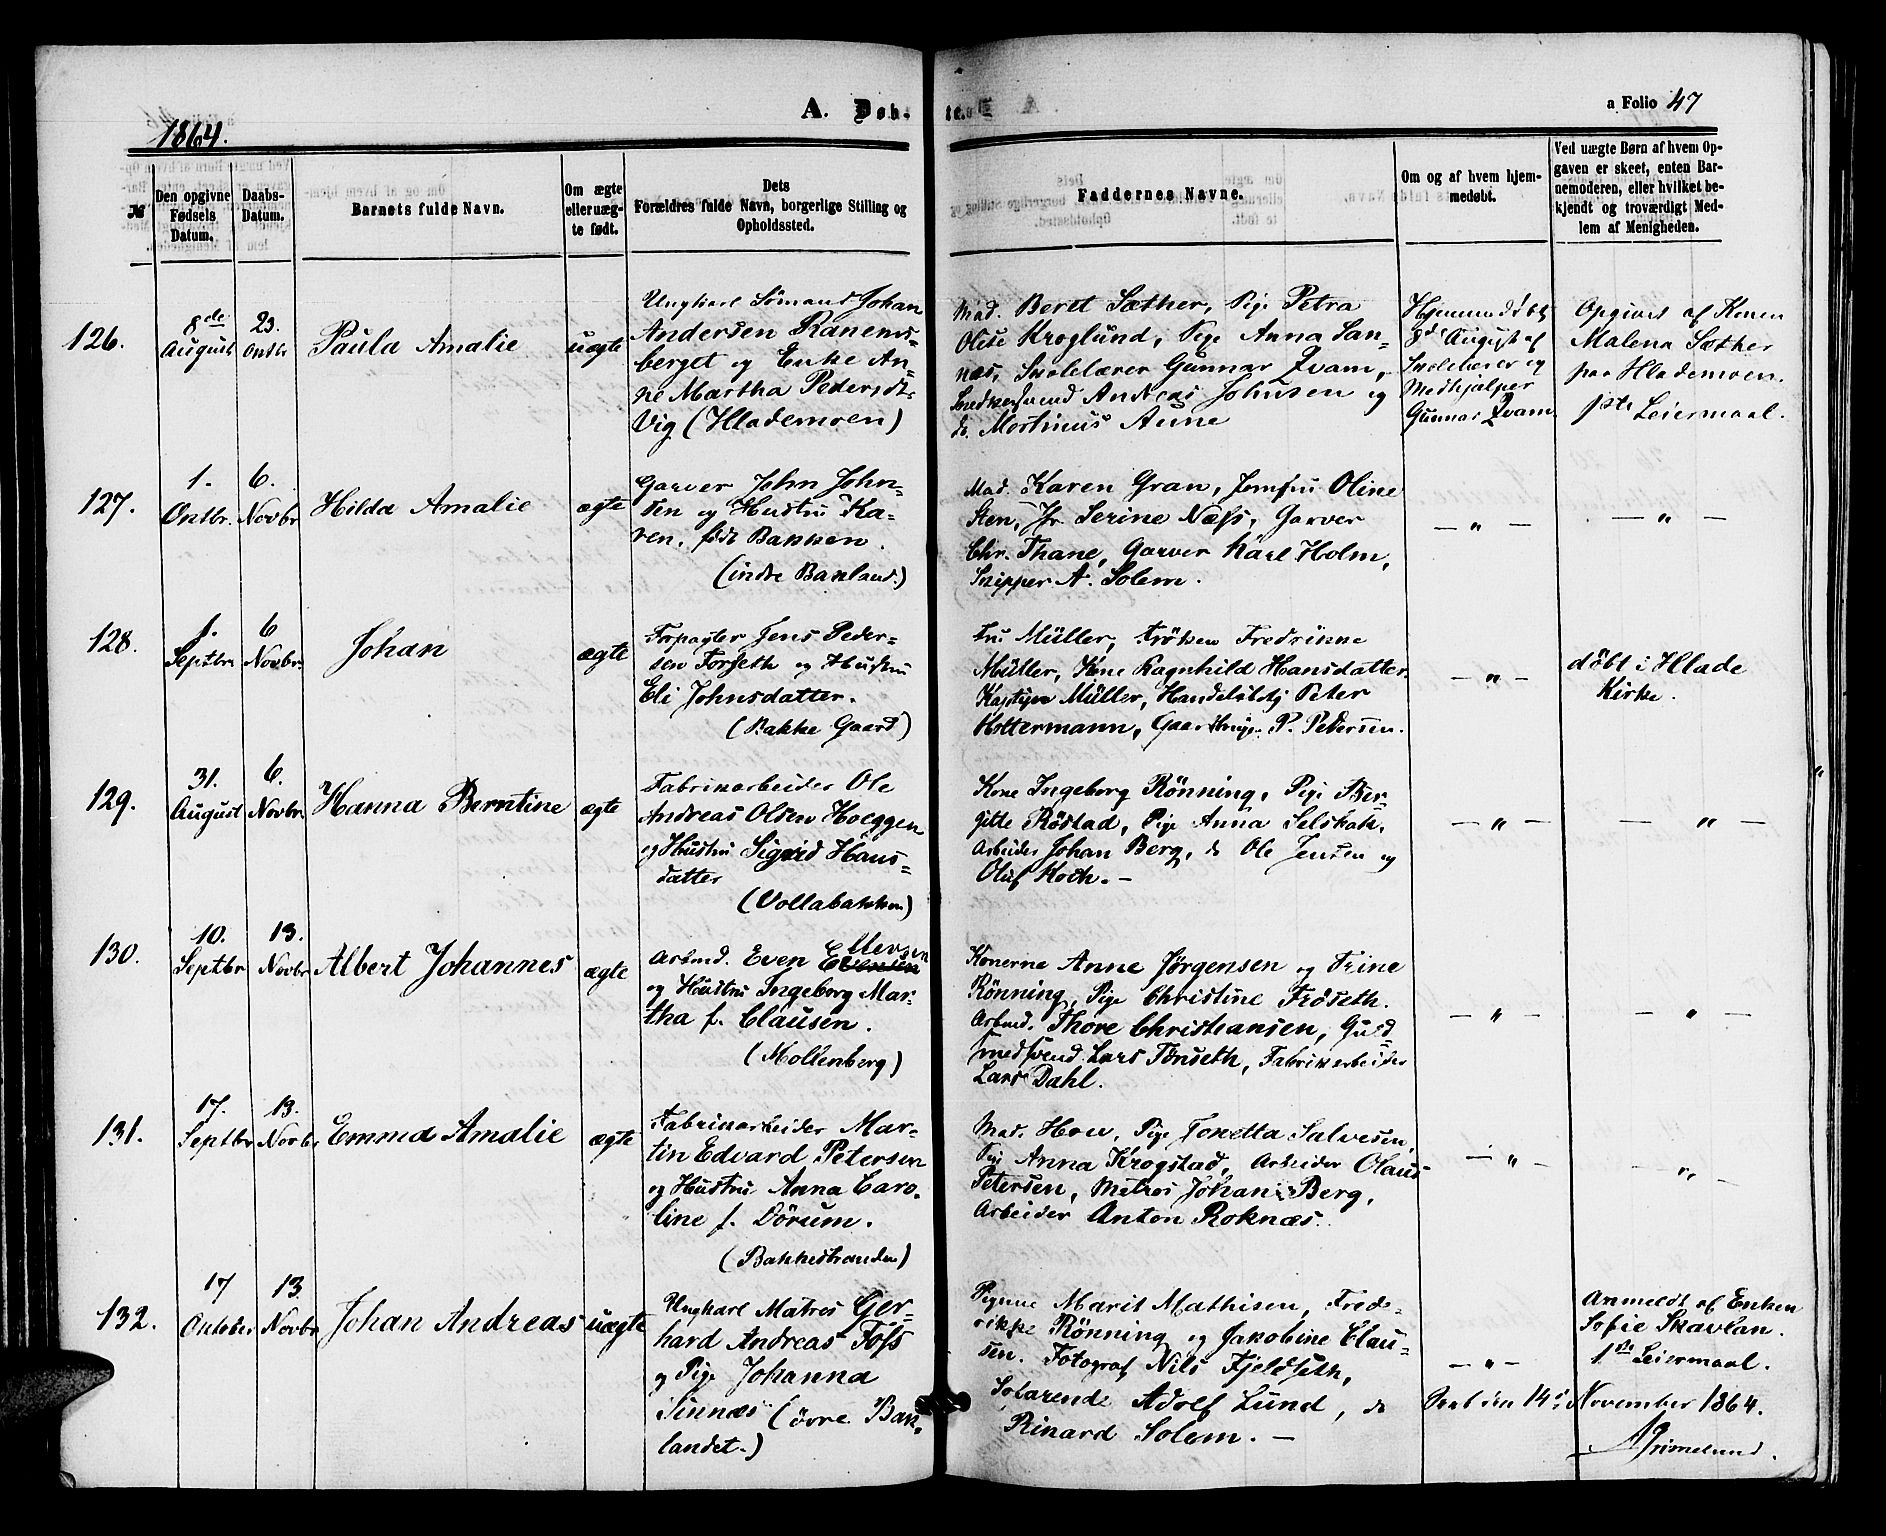 1864.
A. Døb-
a Folio 47
№
Den opgivne
Fødsels
Datum.
Daabs-
Datum.
Barnets fulde Navn.
Om ægte
eller uæg-
te født.
Dets
Forældres fulde Navn, borgerlige Stilling og
Opholdssted.
Faddernes Navne.
Om og af hvem hjem-
medøbt.
Ved uægte Børn af hvem Op-
gaven er skeet, enten Bar-
nemoderen, eller hvilket be-
kjendt og troværdigt Med-
lem af Menigheden.
126.
8de
August
23.
Octbr
Paula Amalie
uægte
Ungkarl Sömand Johan
Andersen Ranems-
berget og Enke An-
ne Martha Pedersdt.
Vig (Hlademoen)
Mad. Beret Sæther, Pige Petra
Olise Kroglund, Pige Anna San-
næs, Skolelærer Gunnar Qvam,
Snedkersvend Andreas Johnsen og
do. Martinus Aune
Hjemmedöbt
8de August af
Skolelærer og
Medhjælper
Gunnar Qvam
Opgivet af Konen
Malena Sæther
paa Hlademoen.
1ste Leiermaal.
127.
1.
Octbr.
6.
Novbr
Hilda Amalie
ægte
Garver John John-
sen og Hustru Ka-
ren, född Bakken.
(indre Bakland.)
Mad. Karen Gran, Jomfru Oline
Sten, Jr Serine Næss, Garver
Chr. Thane, Garver Karl Holm,
Skipper A. Solem.
— " —
— " —
128.
1.
Septbr
6
Novbr.
Johan
ægte
Forpagter Jens Peder-
sen Forseth og Hustru
Eli Johnsdatter.
(Bakke Gaard)
Fru Müller, Fröken Fredrikke
Müller, Kone Ragnhild Hansdatter,
Müller, Peter
Hottermann, P. Pedersen.
— " —
döbt i Hlade
Kirke.
129.
31.
August
6.
Novbr.
Hanna Berntine
ægte
Fabrikarbeider Ole
Andreas Olsen Hoeggen
og Hustru Sigrid Hans-
datter
(Vollabakken)
Kone Ingeborg Rönning, Pige Ber-
gitte Röstad, Pige Anna Selskak,
Arbeider Johan Berg, do Ole Jensen og
Oluf Koch. —
— " —
— " —
130.
10.
Septbr
13.
Novbr
Albert Johannes
ægte
Arbmd. Even Ellevsen
og Hustru Ingeborg Mar-
tha f. Clausen.
(Mollenberg)
Konerne Anne Jørgensen og Trine
Rönning, Pige Christine Fröseth.
Arbmd. Thore Christiansen, Guld
smedsvend Lars Tönseth, Fabrikarbeider
Lars Dahl.
— " —
— " —
131.
17.
Septbr
13.
Novbr
Emma Amalie
ægte
Fabrikarbeider Mar-
tin Edvard Petersen
og Hustru Anna Caro-
line f. Dörum.
(Bakkestranden)
Mad. Hou, Pige Tonetta Salvesen,
Pige Anna Krogstad, Arbeider Olaus
Petersen, Matros Johan Berg,
Arbeider Anton Roknæs.
— " —
— " —
132.
17
October
13.
Novbr
Johan Andreas
uægte
Ungkarl Matros Ger-
hard Andreas Foss
og Pige Johanna
Sinnæs (övre Bak-
landet.)
Pigerne Marit Mathisen, Frede-
rikke Rönning og Jakobine Clau-
sen. Fotograf Nils Fjeldseth,
Adolf Lund, do
Rinard Solem. —
— " —
Anmeldt af Enken
Sofie Skavlan.
1ste Leiermaal.
14d November 1864.